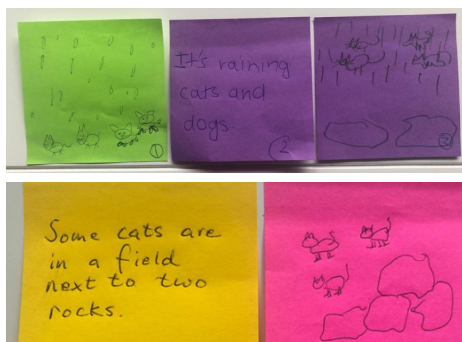 1
It's raining
cats and
dogs
2
Some cats are
in a field
next to two
rocks.